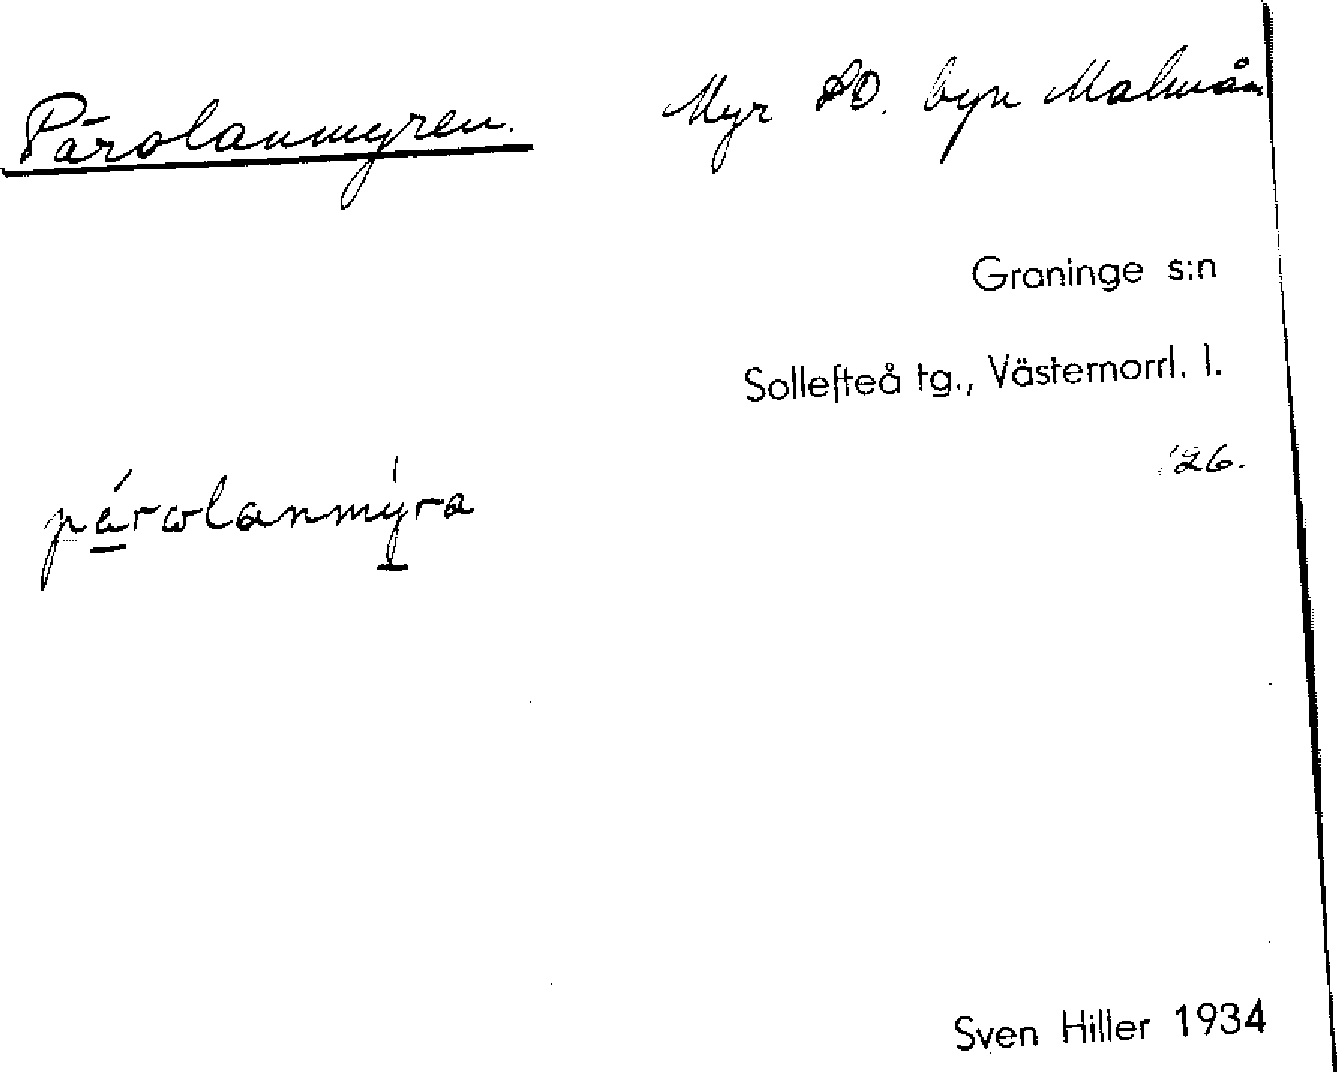 Pärolanmyren.
Myr SO. byn Malmån
Graninge s:n
Sollefteå tg., Västernorrl. l.
'26.
párωlanmýra
Sven Hiller 1934